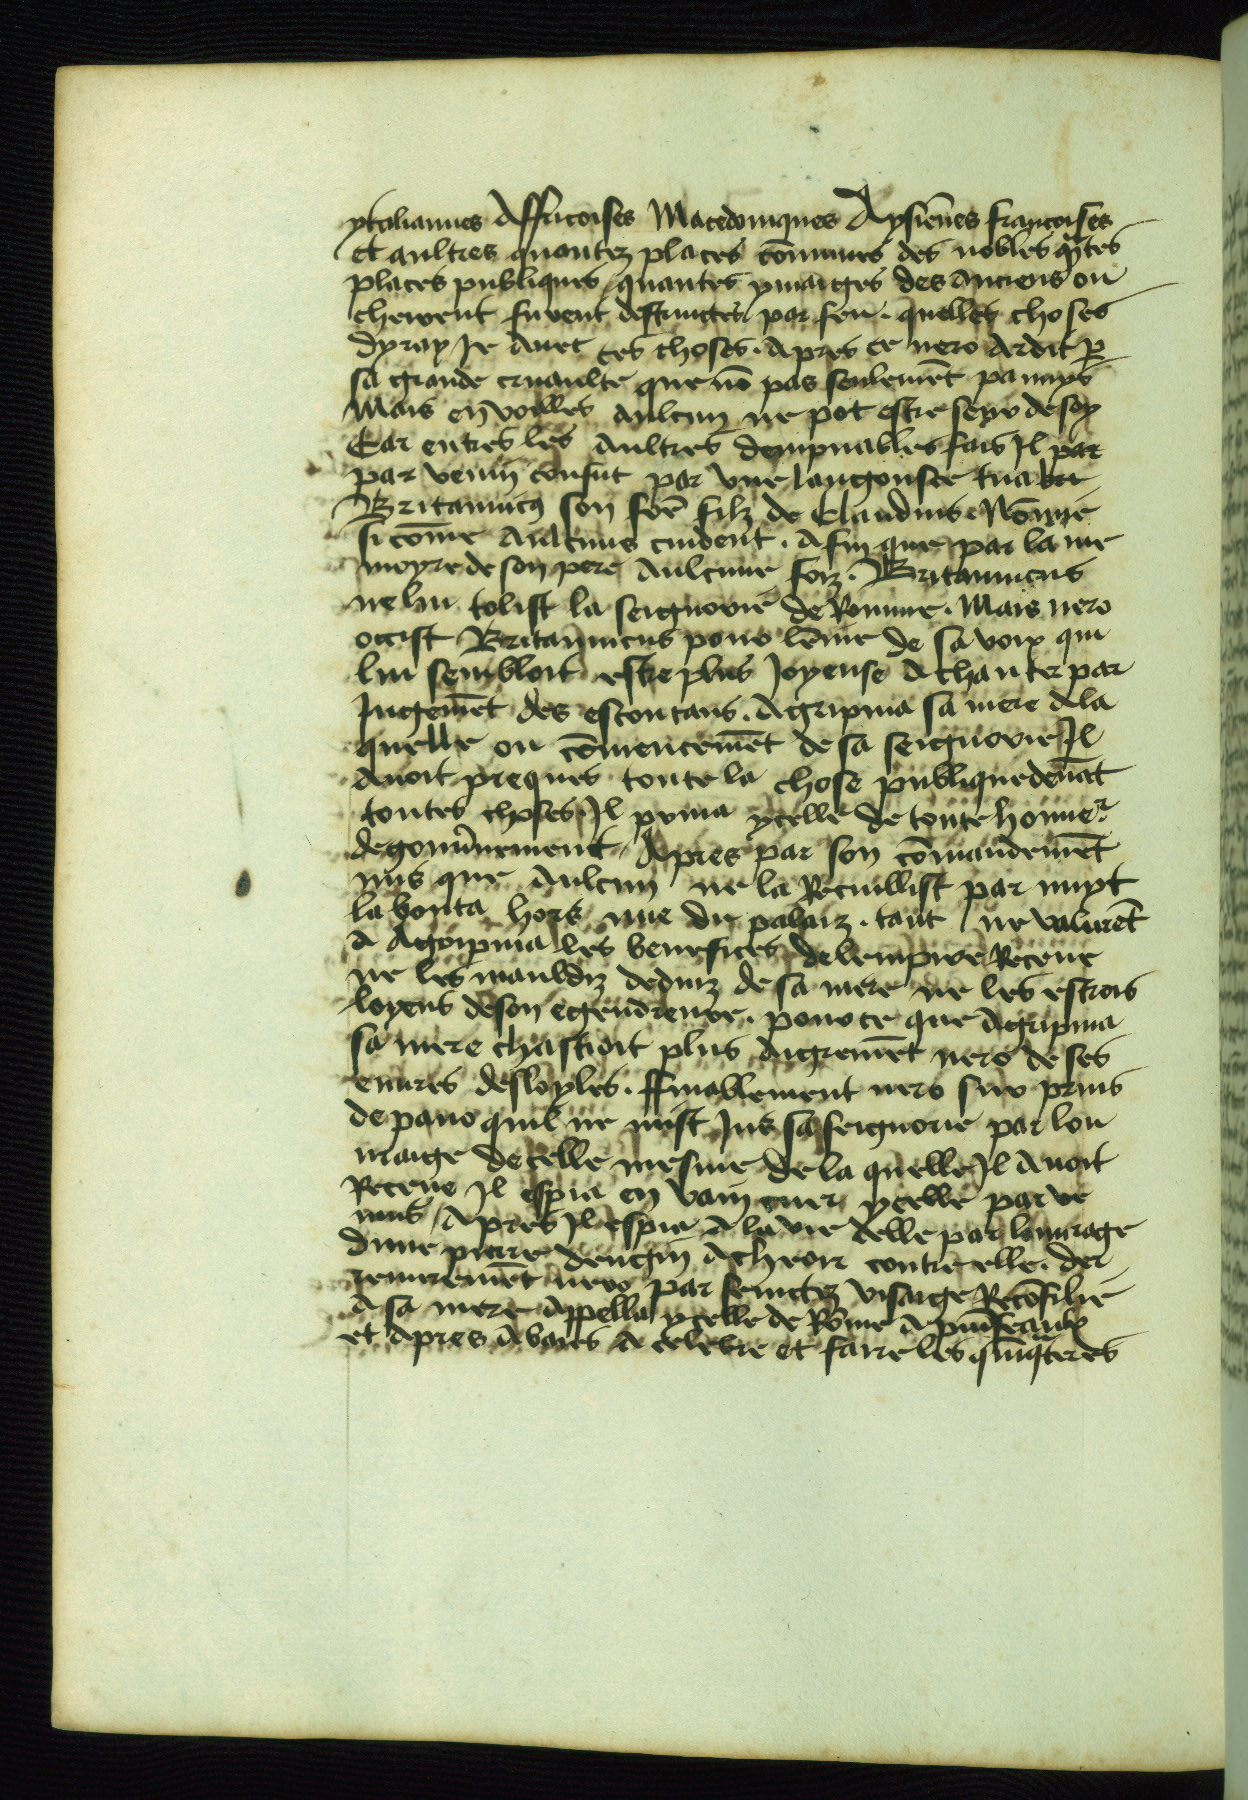 ytaliannes Affricoises Macedoniques Aysiēnes francoises
et aultres quantez places cōmunes des nobles q̃ntes
places publiques quantes ymaiges des anciens ou
cheirent furent destruictes par feu . quelles choses
dyray Je auec ces choses . Apres ce nero ardit p̱
sa grande cruaulte que nō pas seulemēt
Mais eŋ aulcuŋ ne pot estre seur de soy
Car entres les aultres dempnables fais Jl par
par venin confut par vne langouste tua
Britanincꝰ soŋ fr̄e filz de Claudius . Nōme
sicōme aulcuns cuident . Afin que par la me
moyre de soŋ pere aulcune foiz . Britanincus
ne luj tolist la seignorie de Romme . Mais nero
occist Britanincus pour lēuie de sa voix qui
luj sembloit estre plus Joyeuse a chanter par
Jugemēt des escoutans . Agripina sa mere a la
quelle ou cōmencemēt de sa seignorie Jl
auoit preques toute la chose publique deuāt
toutes choses . Jl priua ycelle de toute honneʳ
de gouūnement . Apres par soŋ cōmandemēt
mis que aulcuŋ ne la Recuillist par nuyt
la bouta hors nue du palaiz . tant ne valurēt
a Agripina les benefices de lempire Receue
ne les mauldiz deduiz de sa mere ne les estrois
loyens de soŋ egendreure . pource que Agripina
sa mere chastioit plus aigremēt nero de ses
euures desloyles . ffinablement nero sur prins
de paour quil ne mist Jus sa seignorie par lou
uraige de celle mesme de la quelle Jl auoit
Receue Jl espia eŋ vaiŋ tuer ycelle par ve
nins Apres Jl espia a la vie delle par louurage
dune pierre dengiŋ a cheoir contre elle . der
renieremēt nero par feinctez visaige Recōsilie
a sa mere Appella ycelle de Rōme a
et apres abaies a celebre et faire les